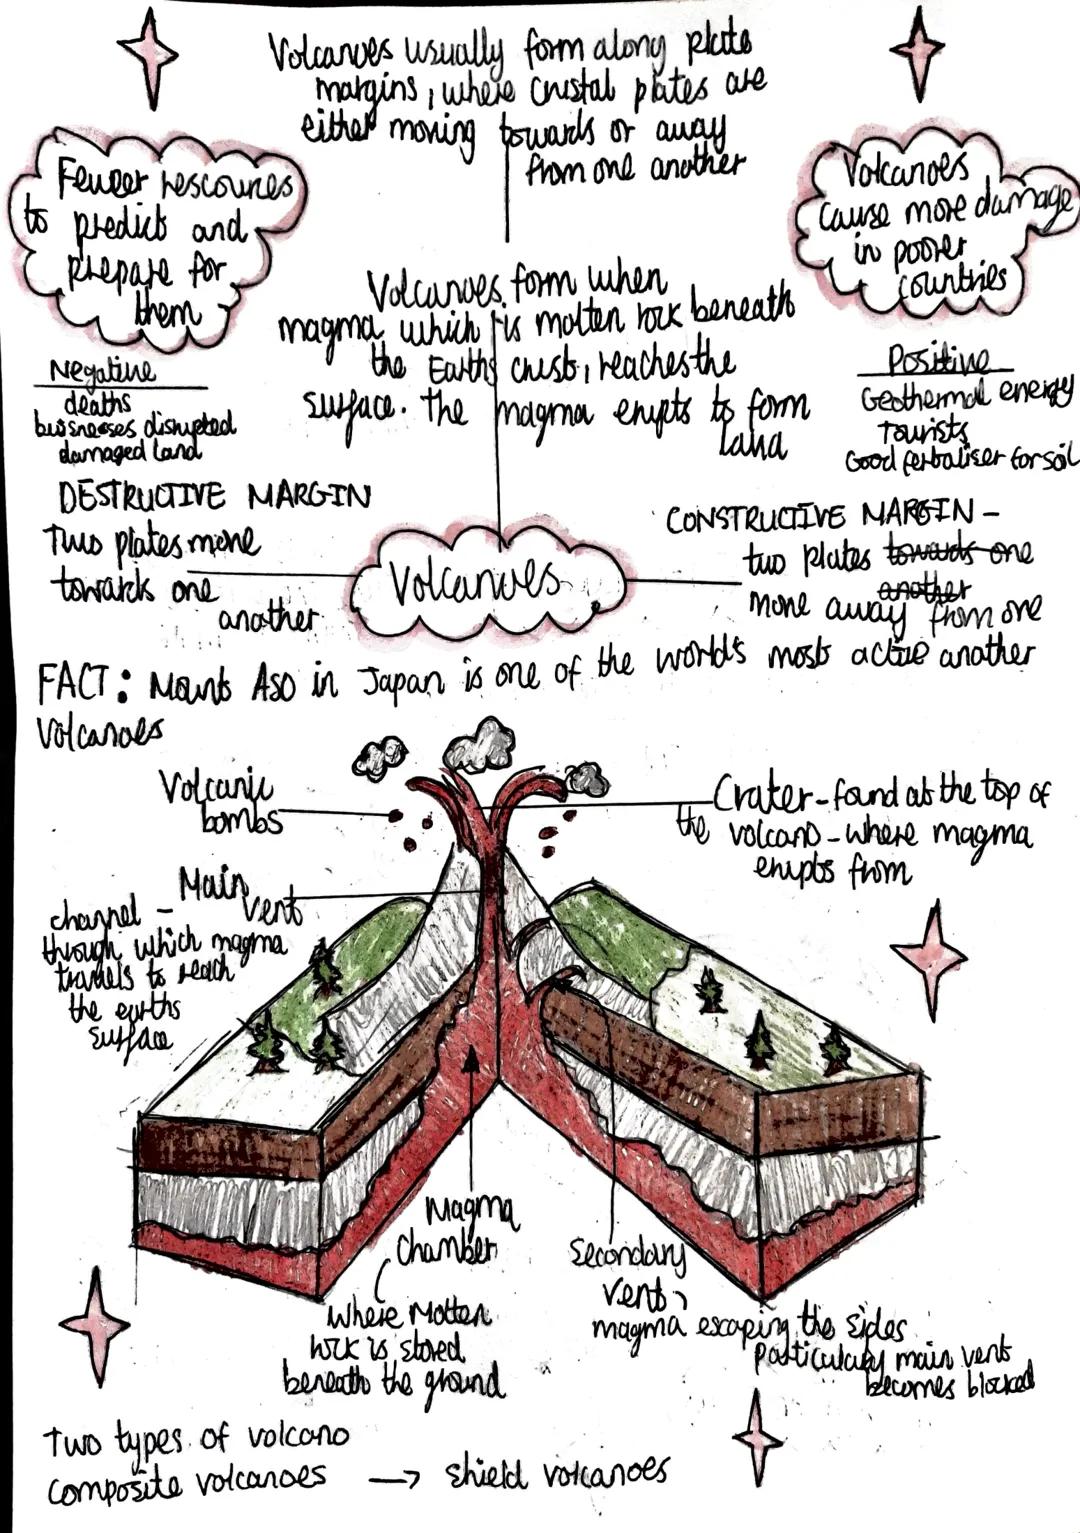 Volcanoes usually form along plate
margins, where crustal plates are
either moving towards or away
from one another
Fewer rescources
to predict and
prepare for
them
Volcanoes
cause more damage
in poorer
countries
Volcanoes form when
magma which is molten rock beneath
the Earths crust, reaches the
surface. The magma erupts to form
lava
Negative
deaths
buisnesses disrupted
damaged land
Positive
Geothermal energy
Tourists
Good fertaliser for soil
DESTRUCTIVE MARGIN
Two plates move
towards one
another
Volcanoes
CONSTRUCTIVE MARGIN -
two plates towards one
another
move away from one
another
FACT: Mount Aso in Japan is one of the world's most active
Volcanoes
Volcanic
bombs
Crater - found at the top of
the volcano - where magma
erupts from
Main
vent
channel -
through which magma
travels to reach
the earths
surface
Magma
Chamber
where Molten
rock is stored
beneath the ground
Secondary
vent,
magma escaping the sides
particulary main vent
becomes blocked
Two types of volcano
composite volcanoes → shield volcanoes